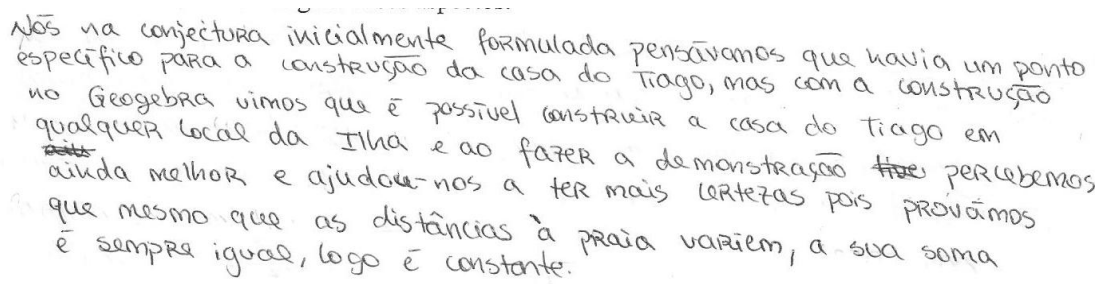 Nós na conjectura inicialmente formulada pensávamos que havia um ponto
específico para a construção da casa do Tiago, mas com a construção
no Geogebra vimos que é possível construir a casa do Tiago em
qualquer local da Ilha e ao fazer a demonstração percebemos
ainda melhor e ajudou-nos a ter mais certezas pois provámos
que mesmo que as distâncias à praia variem, a sua soma
é sempre igual, logo é constante.